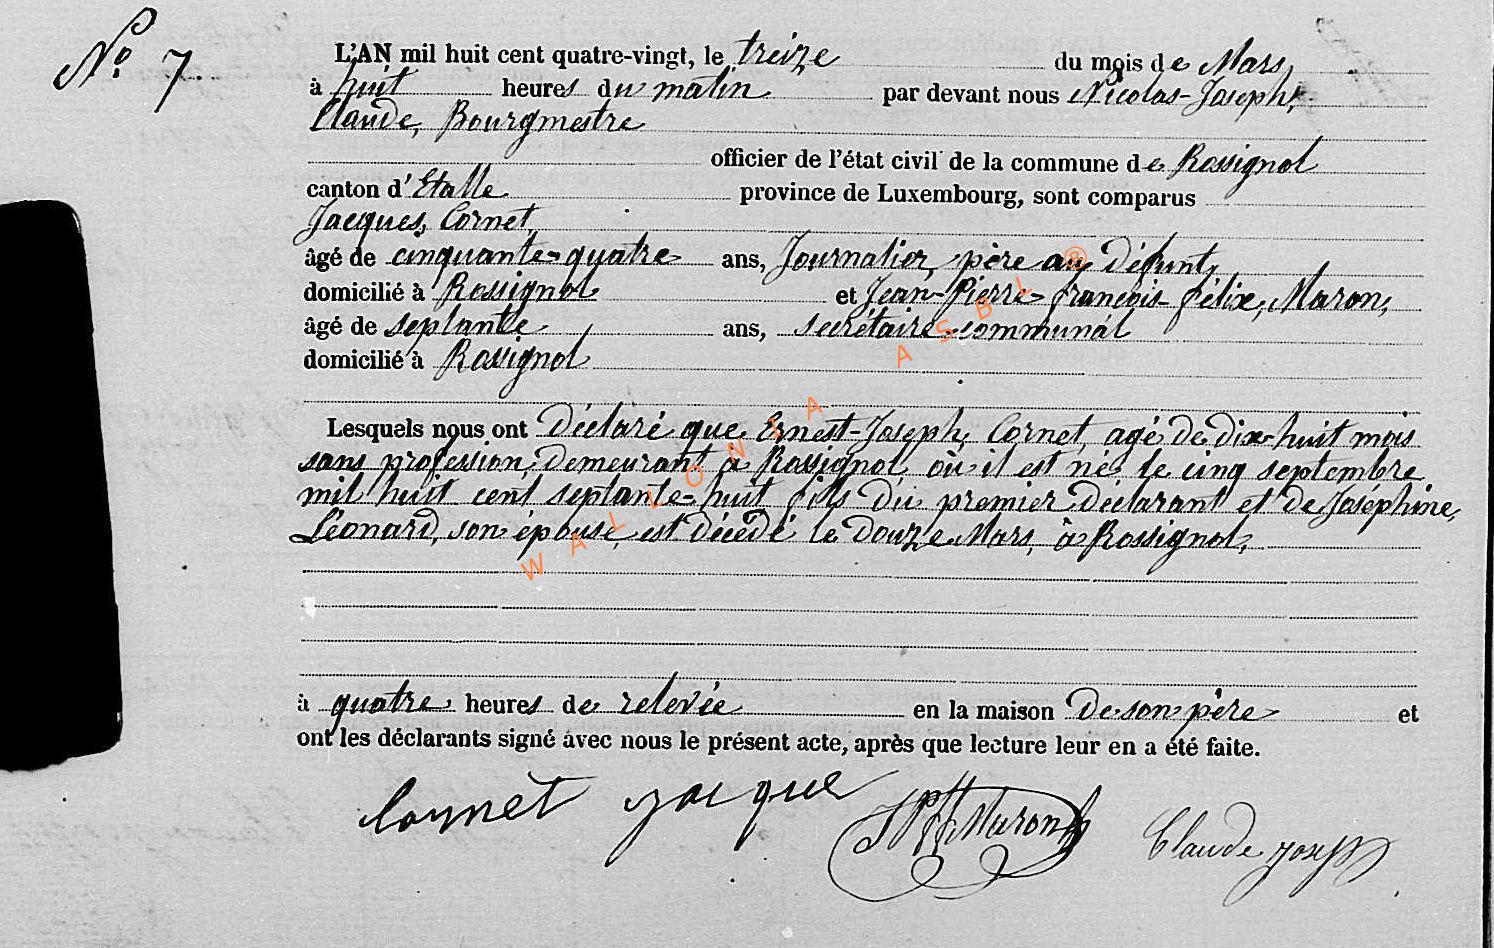 N° 7.
L'AN mil huit cent quatre-vingt, le treize du mois de Mars,
à huit heures du matin par devant nous Nicolas-Joseph,
Claude, Bourgmestre
officier de l'état civil de la commune de Rossignol
canton d'Etalle province de Luxembourg, sont comparus
Jacques, Cornet,
âgé de cinquante-quatre ans, Journalier, père au défunt,
domicilié à Rossignol et Jean-Pierre-françois-félix, Maron,
âgé de septante ans, secrétaire communal
domicilié à Rossignol
Lesquels nous ont déclaré que Ernest-Joseph, Cornet, agé de dix-huit mois
sans profession, demeurant à Rossignol, où il est né, le cinq septembre
mil huit cent septante-huit fils du premier déclarant et de Joséphine,
Léonard, son épouse, est décédé le douze Mars, à Rossignol,
à quatre heures de relevée en la maison de son père et
ont les déclarants signé avec nous le présent acte, après que lecture leur en a été faite.
Cornet jacque JPff Maron Claude joseph
WALLONIA ASBL ®